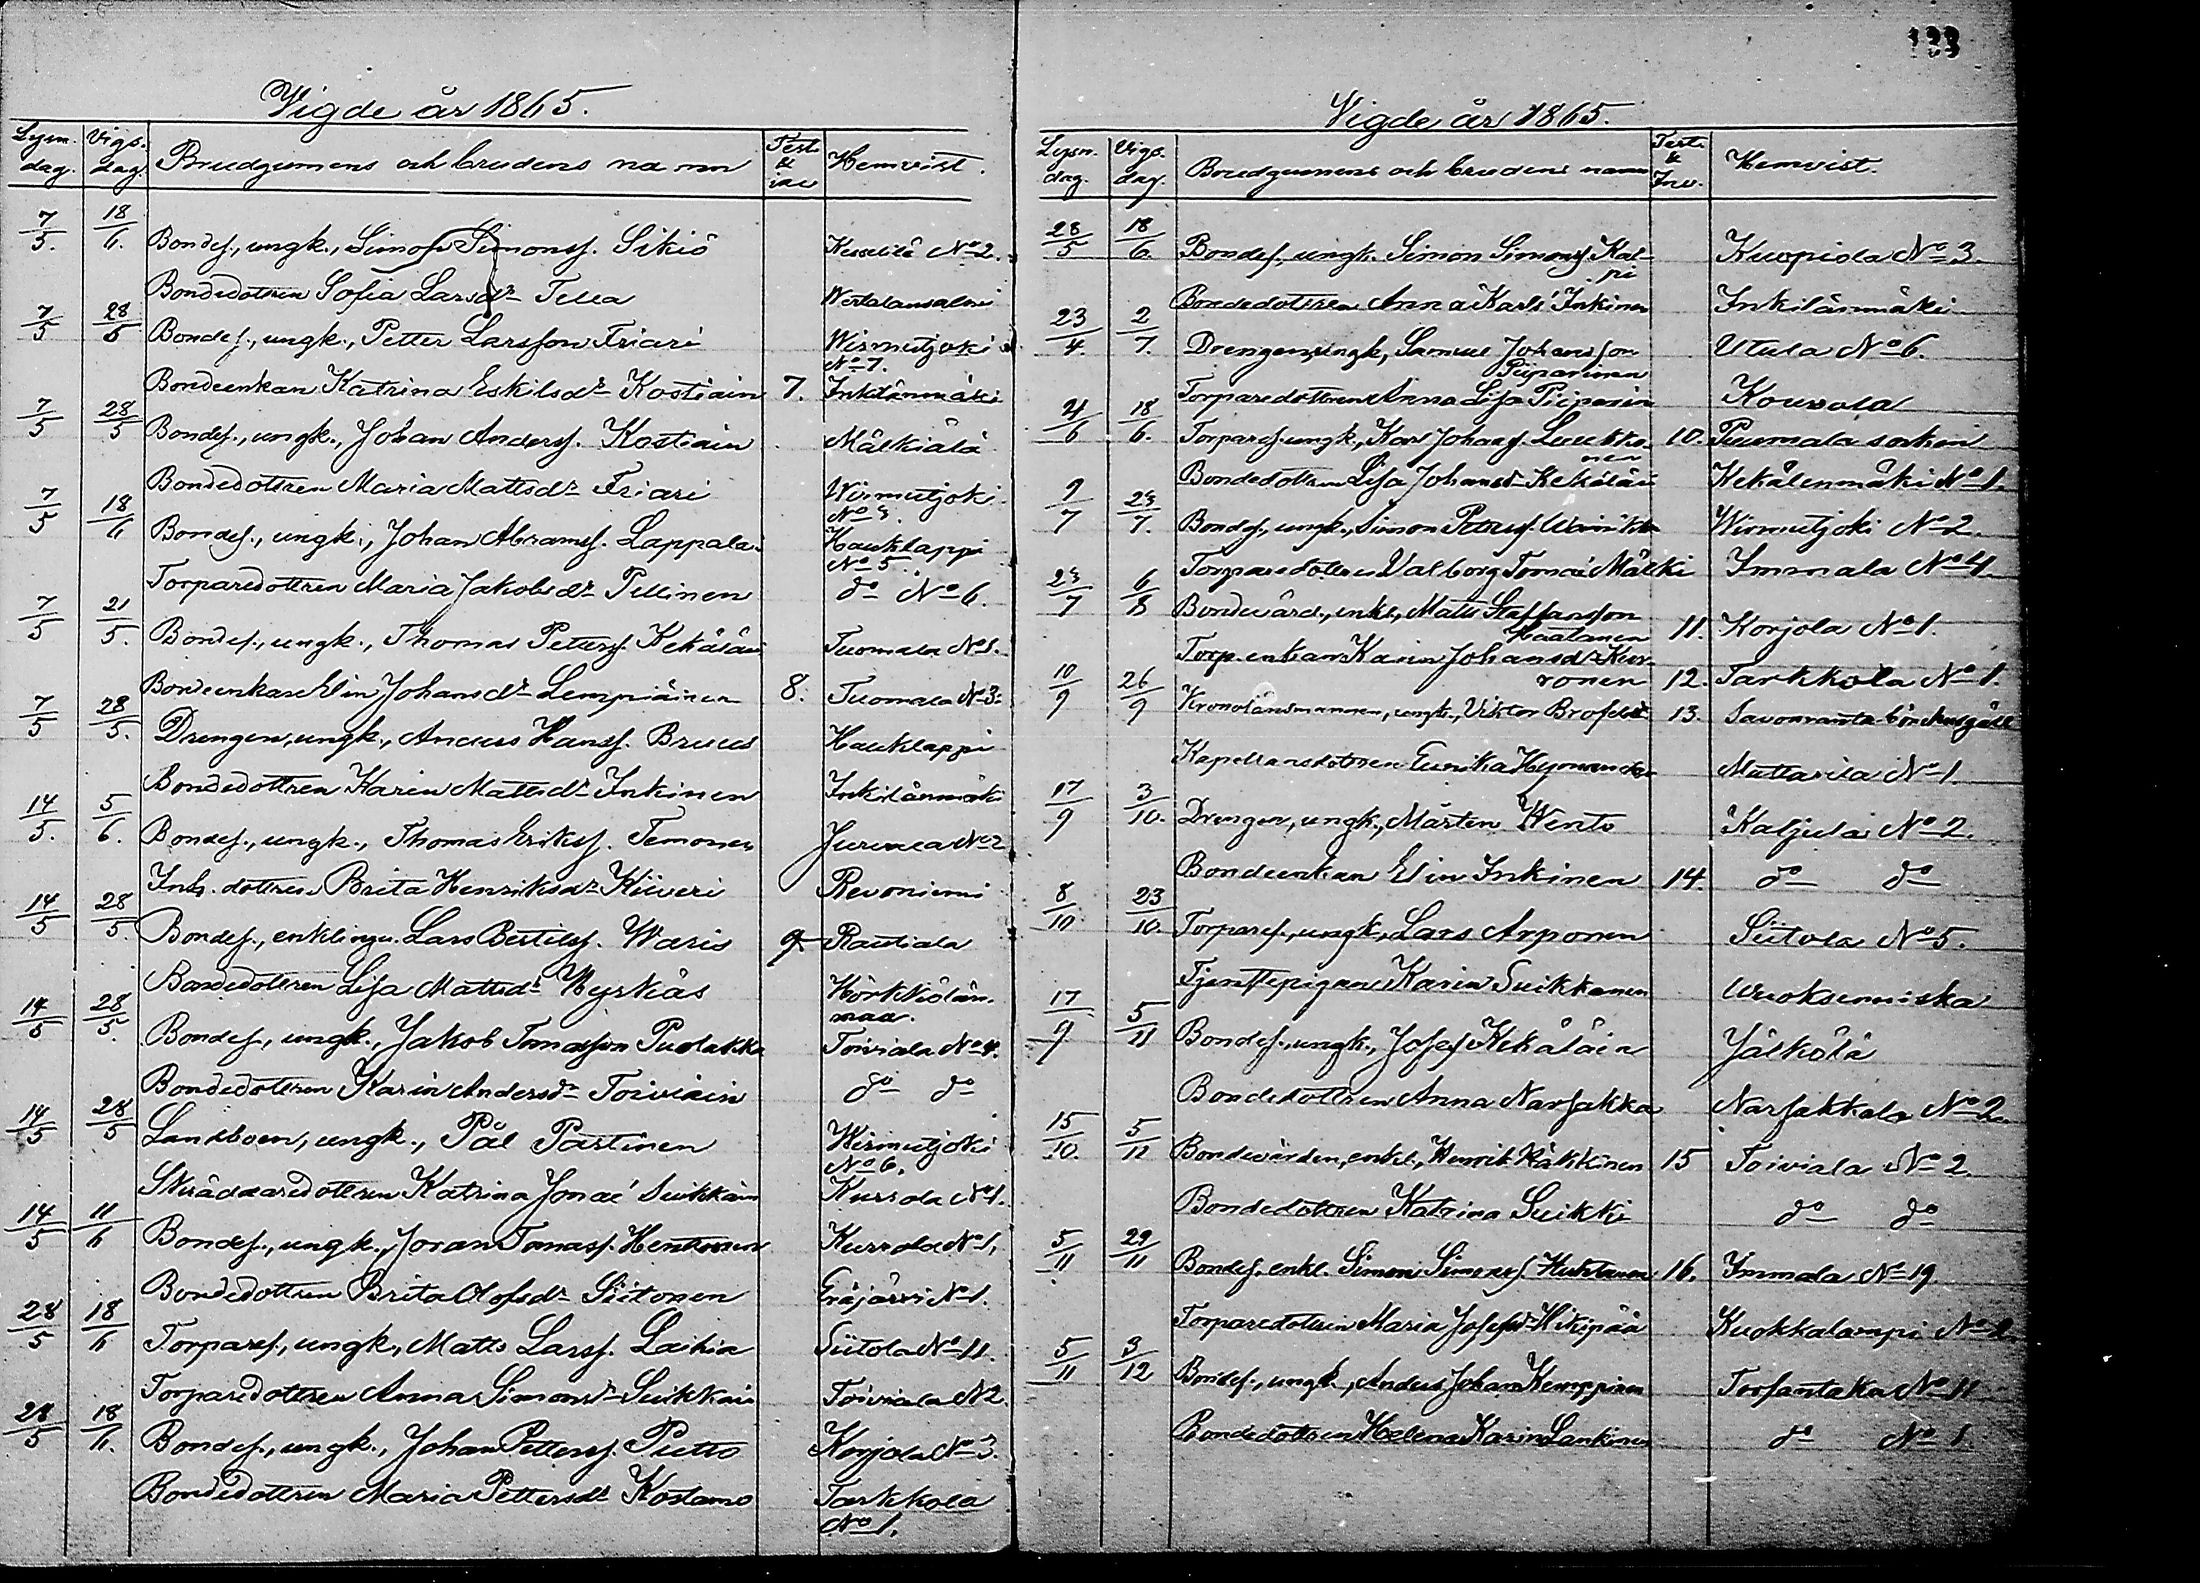 Vigde år 1865.
Lysn. dag. Vigs. dag. Brudgumens och brudens namn Test. & inv Hemvist.
7/5. 18/6. Bondes., ungk., Simon Simonss. Sikiö
Bondedottren Sofia Larsdr Tella
7/5 28/5 Bondes., ungk., Petter Larsson Friari Wirmutjoki No 7.
Bondeenkan Katrina Eskilsdr Kostiain 7. Inkilänmäki
7/5 28/5 Bondes., ungk., Johan Anderss. Kostiain Mälkiälä
Bondedottren Maria Mattsdr Friari Wirmutjoki
7/5 18/6 Bondes., ungk., Johan Abramss. Lappalai Hauklappi No 5.
Torparedottren Maria Jakobsdr Pellinen do No 6.
7/5 21/5. Bondes., ungk., Thomas Peterss. Kekäläi Tuomala No 1.
Bondeenkan Elin Johansdr Lempiäinen 8. Tuomala No 3.
7/5 28/5. Drengen, ungk., Anders Hanss. Bruus Hauklappi
Bondedottren Karin Mattsdr Inkinen Inkilänmäki
14/5. 5/6. Bondes., ungk., Thomas Erikss. Temonen Jurvala No 2
Inh. dottren Brita Henriksdr Kiiveri Revoniemi
14/5 28/5. Bondes., enklingn. Lars Bertilss. Waris 9 Rautiala
Bondedottren Lisa Mattsdr Hyrkäs Hörkkölän maa.
14/5 28/5. Bondes., ungk., Jakob Tomasson Puolakka Toiviala No 4.
Bondedottren Karin Andersdr Toiviain do do
14/5 28/5 Landboen, ungk., Pål Partinen Wirmutjoki No 6.
Skräddaredottren Katrina Jonae Suikkain Kurrola No 1.
14/5 11/6 Bondes., ungk., Joran Tomass. Henttonen Kurrola No 1,
Bondedottren Brita Olofsdr Siitonen Eräjärvi No 1.
28/5 18/6 Torpares., ungk., Matts Larss. Laihia Siitola No 11.
Torparedottren Anna Simonsdr Suikkai Toiviala No 2
28/5 18/6. Bondes., ungk., Johan Petterss. Putto Korjola No 3.
Bondedottren Maria Pettersdr Kostamo Tarkkola No 1.
133
Vigde år 1865.
Lysn. dag. Vigs. dag. Brudgumens och brudens namn Test. & Inv. Hemvist.
28/5 18/6. Bondes., ungk. Simon Simonss. Kalpi Kuopiola No 3.
Bondedottren Anna Karls Inkinen Inkilänmäki
23/4. 2/7. Drengen, ungk., Samuel Johansson Piiparinen Utula No 6.
Torparedottren Anna Lisa Piiparin Kouvola
4/6 18/6. Torpares. ungk., Karl Johans. Luukkonen 10. Puumala socken
Bondedottren Lisa Johansdr Kekäläi Kekälenmäki No 1.
9/7 23/7. Bondes., ungk., Simon Peterss. Wirmutjoki No 2.
Torparedottren Valborg Tomae Mälki Immala No 4
23/7 6/8 Bondevärd., enkl., Matts Staffansson Haatanen 11. Korjola No 1.
Torp.enkan Karin Johansdr Kurronen 12. Tarkkola No 1.
10/9 26/9 Kronolänsmannen, ungk., Viktor Brofeldt 13. Savonranta
Kapellansdottren Eurika Heinonen Mattarila No 1.
17/9 3/10. Drengen, ungk., Mårten Wento Kaljula No 2.
Bondeenkan Elin Inkinen 14. do do
8/10 23/10. Torpares., ungk., Lars Arponen Siitola No 5.
Tjenstepigan Karin Suikkanen Wuoksenniska
17/9 5/11 Bondes., ungk., Josef Kekäläin Jälkölä
Bondedottren Anna Narsakka Narsakkala No 2.
15/10. 5/11 Bondevärden, enkl., Henrik Häkkinen 15 Toiviala No 2.
Bondedottren Katrina Suikki do do
5/11 29/11 Bondes. enkl. Simon Simonss. Huhtanen 16. Immala No 19
Torparedottren Maria Josefsdr Hikipää Kuokkalampi
5/11 3/12 Bondes., ungk., Anders Johan Kemppinen Torsantaka No 11
Bondedottren Helena Karin Lankinen do No 1.